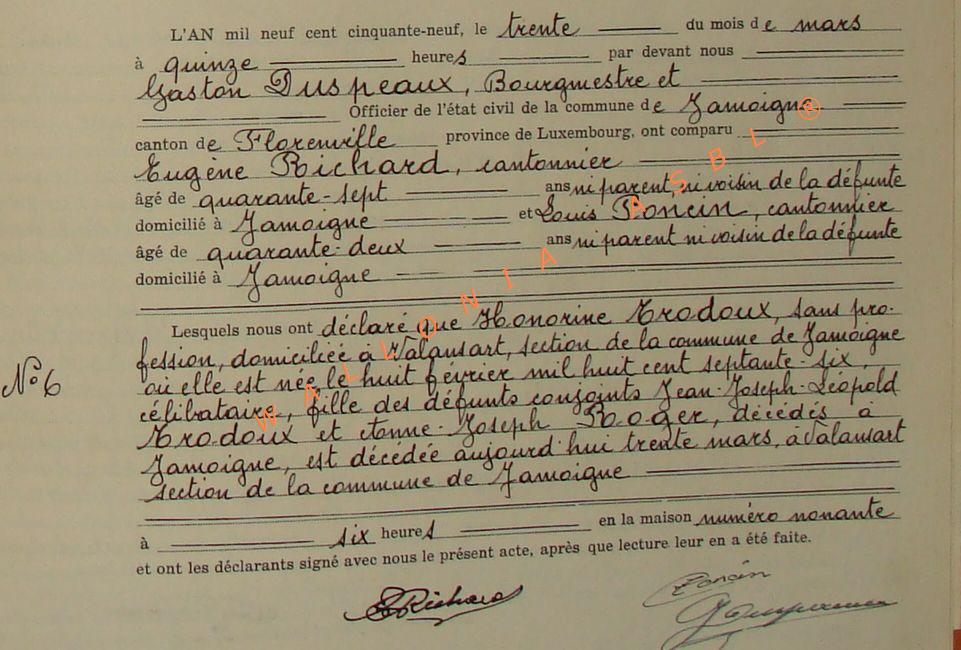 L'AN mil neuf cent cinquante-neuf, le trente du mois de mars
à quinze heures par devant nous
Gaston Duspeaux, Bourgmestre et
Officier de l'état civil de la commune de Jamoigne
canton de Florenville province de Luxembourg, ont comparu
Eugène Richard, cantonnier
âgé de quarante-sept ans ni parent, ni voisin de la défunte
domicilié à Jamoigne et Louis Poncin, cantonnier
âgé de quarante-deux ans ni parent ni voisin de la défunte
domicilié à Jamoigne
Lesquels nous ont déclaré que Honorine Trodoux, sans pro-
fession, domiciliée à Valansart, section de la commune de Jamoigne
N° 6
où elle est née le huit février mil huit cent septante-six,
célibataire, fille des défunts conjoints Jean-Joseph-Léopold
Trodoux et Anne-Joseph Roger, décédés à
Jamoigne, est décédée aujourd'hui trente mars, à Valansart
section de la commune de Jamoigne
à six heures en la maison numéro nonante
et ont les déclarants signé avec nous le présent acte, après que lecture leur en a été faite.
ERichard Poncin
WALLONIA ASBL ®